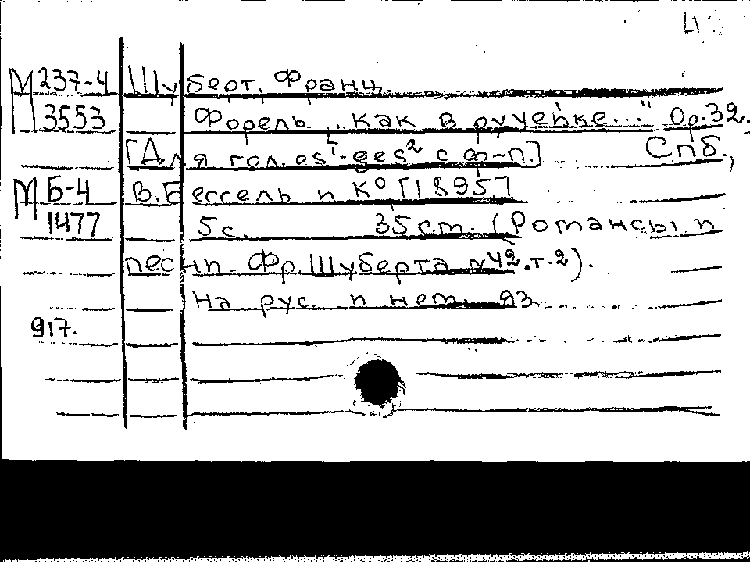 М 237-4 Шуберт, Франц
3553 Форель „Как в ручейке..." Op.32.
[Для гол. es¹-ges² с ф-п.] Спб.,
М Б-4 В. Бессель и К° [1895]
1477 5 с. 35 см. (Романсы и
песни Фр. Шуберта №42.т.2).
На рус. и нем. яз.
917.